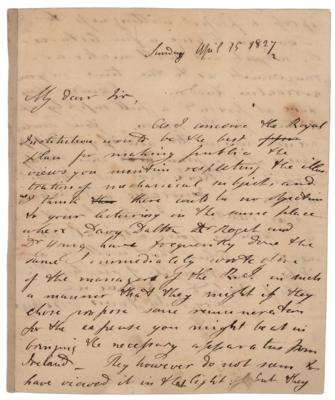 Sunday April 15 1827
My dear Sir,
As I conceive the Royal
Institution would be the best
plan for making public the
views you mention respecting the illus
tration of mechanical subjects and
I think there could be no objection
to your lecturing in the same place
where Davy Dalton Dr Roget and
Dr Young have frequently done the
same I immediately wrote to one
of the managers of the Inst in such
a manner that they might if they
chose propose some remuneration
for the expense you might be at in
bringing the necessary apparatus from
Ireland - They however do not seem to
have viewed it in that light but they